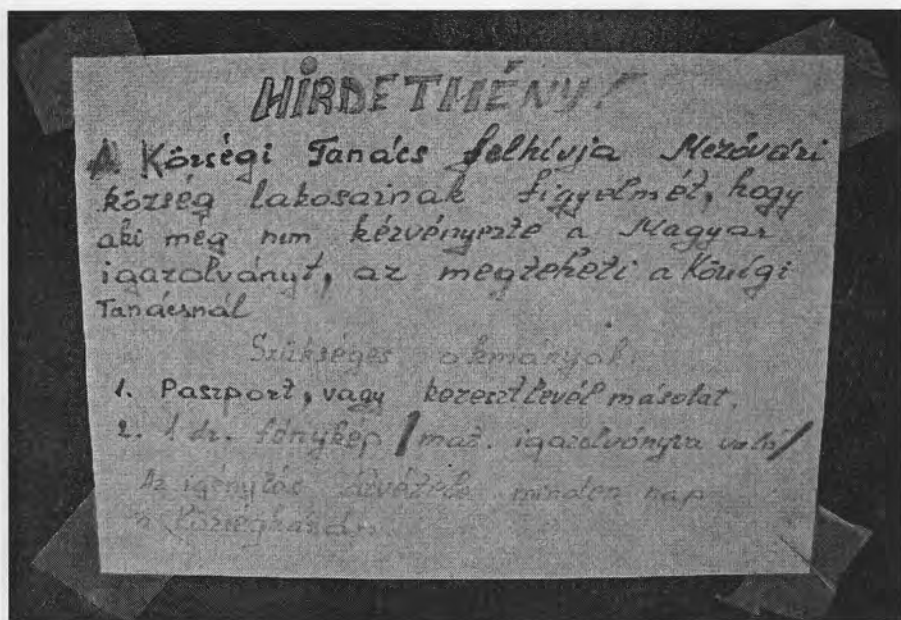 HIRDETMÉNY!
A Községi Tanács felhívja Mezővári
község lakosainak figyelmét, hogy
aki még nem kérvényezte a Magyar
igazolványt, az megteheti a Községi
Tanácsnál
Szükséges okmányok:
1. Paszport, vagy keresztlevél másolat.
2. 1 dr. fénykép / maz. igazolványra való/
Az igénylés átvétele minden nap
a Községházán.